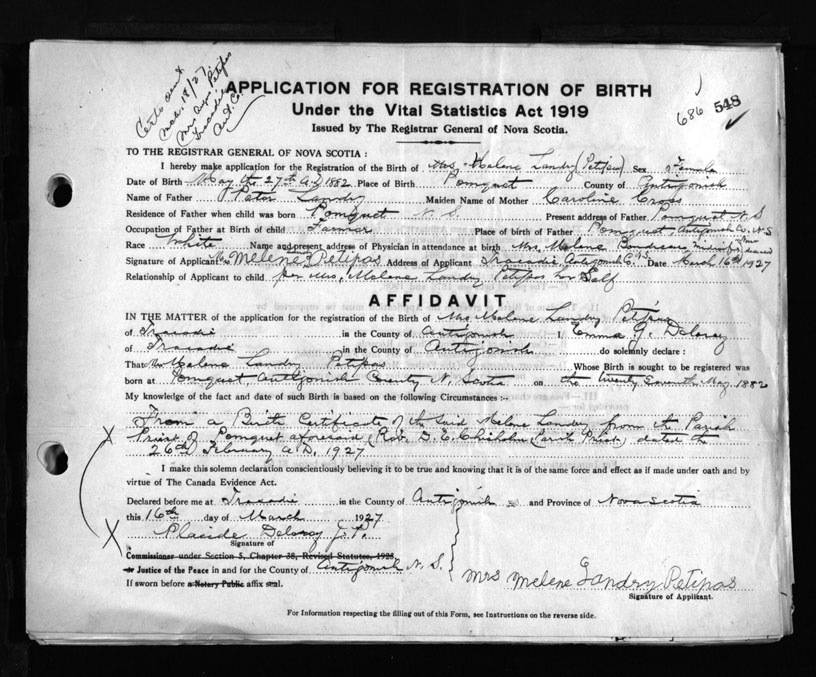 Certs sent
Mar. 18/27
Mrs Petipas
Tracadie
Ant. Co.
APPLICATION FOR REGISTRATION OF BIRTH
Under the Vital Statistics Act 1919
Issued by The Registrar General of Nova Scotia.
686 548
TO THE REGISTRAR GENERAL OF NOVA SCOTIA :
I hereby make application for the Registration of the Birth of Mrs. Melene Landry (Petipas) Sex Female
Date of Birth May the 27th A.D. 1882 Place of Birth Pomquet County of Antigonish
Name of Father Peter Landry Maiden Name of Mother Caroline Cross
Residence of Father when child was born Pomquet N. S. Present address of Father Pomquet N. S
Occupation of Father at Birth of child Farmer Place of birth of Father Pomquet Antigonish Co. N. S
Race White Name and present address of Physician in attendance at birth Mrs. Melene Boudreau Midwife
Signature of Applicant Mrs Melene Landry Petipas Address of Applicant Tracadie Antigonish Co. N S Date March 16th 1927
Relationship of Applicant to child per Mrs. Melene Landry Petipas Self
AFFIDAVIT
IN THE MATTER of the application for the registration of the Birth of Mrs. Melene Landry Petipas
of Tracadie in the County of Antigonish I, Emma G. Delorey
of Tracadie in the County of Antigonish do solemnly declare :
That Mrs Melene Landry Petipas Whose Birth is sought to be registered was
born at Pomquet Antigonish County N. Scotia on the twenty Seventh May 1882
My knowledge of the fact and date of such Birth is based on the following Circumstances :-
From a Birth Certificate of the said Melene Landry from the Parish
Priest of Pomquet aforesaid (Rev. D. E. Chisholm Parish Priest) dated the
26th February A.D. 1927
I make this solemn declaration conscientiously believing it to be true and knowing that it is of the same force and effect as if made under oath and by
virtue of The Canada Evidence Act.
Declared before me at Tracadie in the County of Antigonish and Province of Nova Scotia
this 16th day of March 1927
Placide Delorey J. P.
Signature of
a Commissioner under Section 5, Chapter 38, Revised Statutes, 1923
or Justice of the Peace in and for the County of Antigonish N. S.
If sworn before a Notary Public affix seal.
Mrs Melene Landry Petipas
Signature of Applicant.
For Information respecting the filling out of this Form, see Instructions on the reverse side.